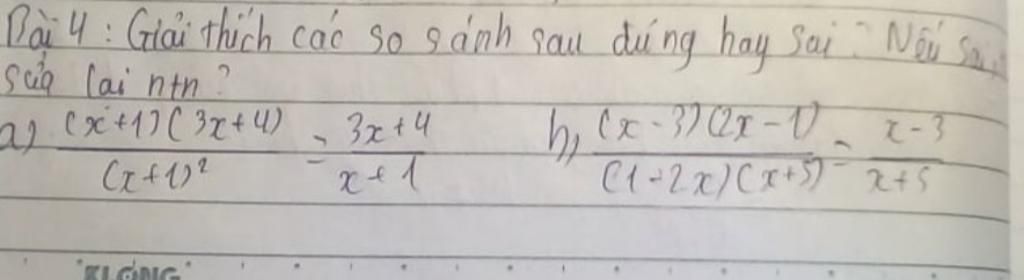 Bài 4: Giải thích các so sánh sau đúng hay sai? Nếu sai,
sửa lại ntn?
a) \frac{(x+1)(3x+4)}{(x+1)^2} = \frac{3x+4}{x+1} b) \frac{(x-3)(2x-1)}{(1-2x)(x+5)} = \frac{x-3}{x+5}
"KLONG"